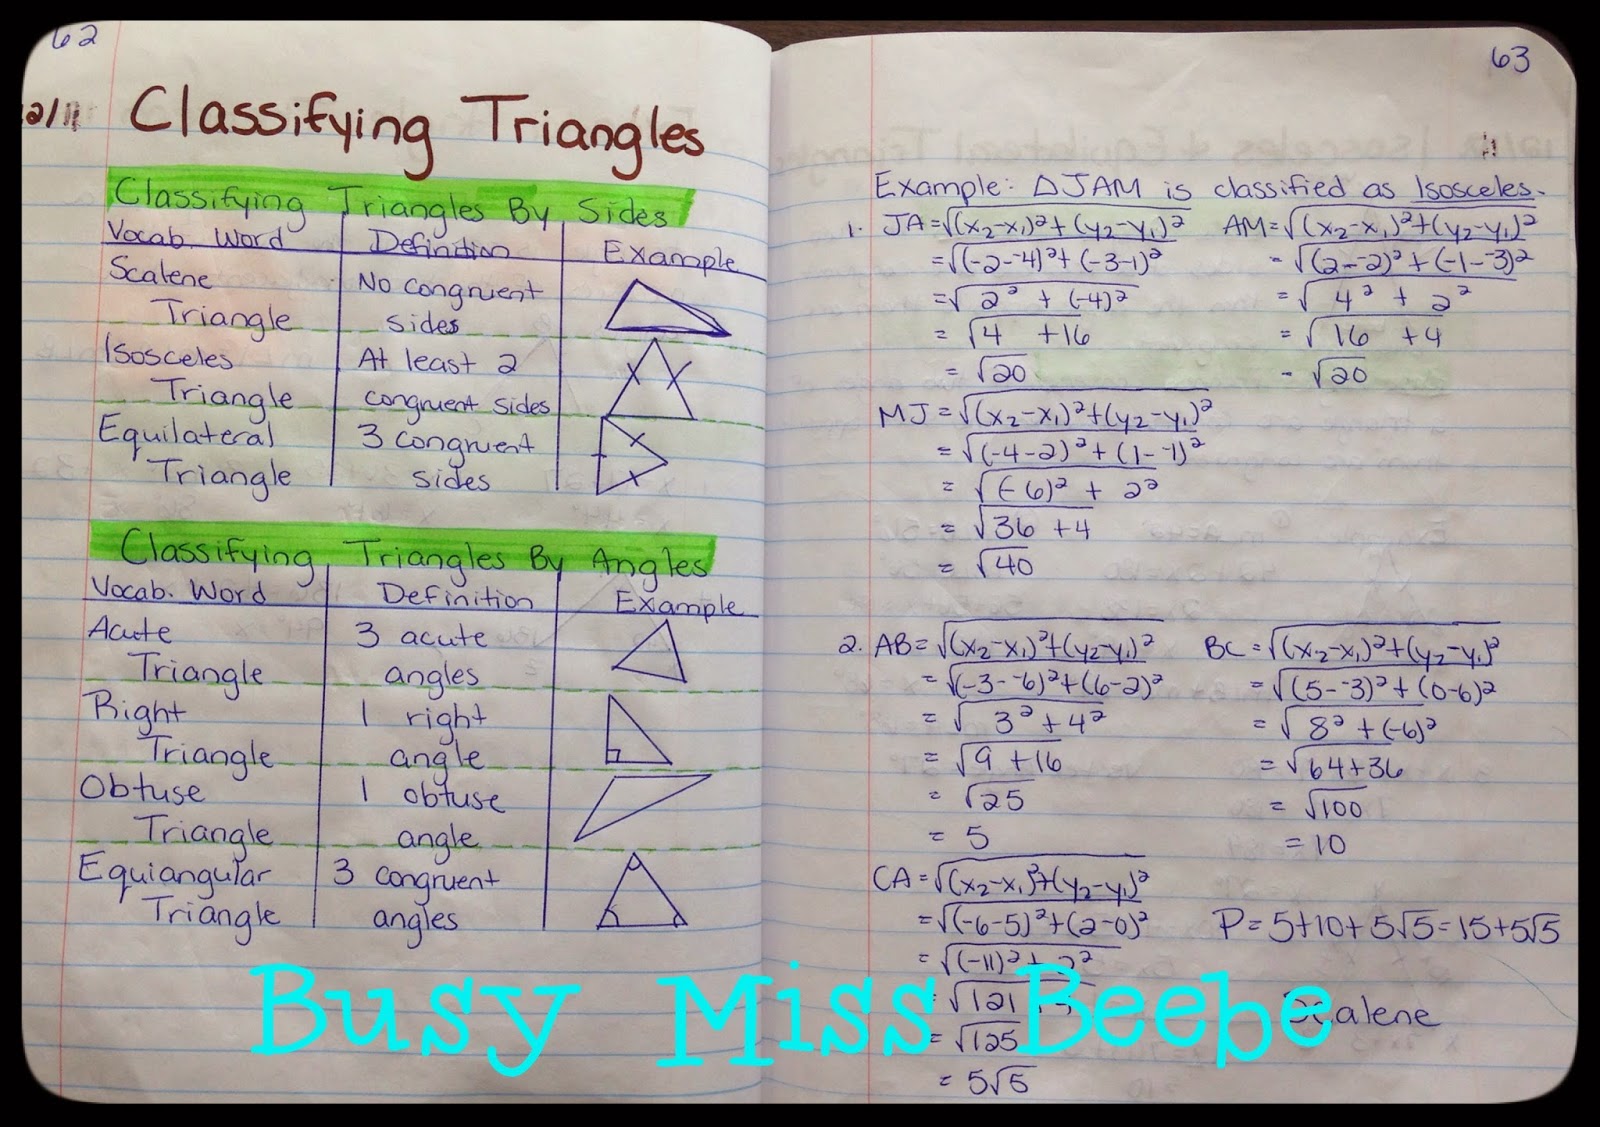 62
Classifying Triangles
Classifying Triangles By Sides
Vocab. Word Definition Example
Scalene Triangle No congruent sides
Isosceles Triangle At least 2 congruent sides
Equilateral Triangle 3 congruent sides
Classifying Triangles By Angles
Vocab. Word Definition Example
Acute Triangle 3 acute angles
Right Triangle 1 right angle
Obtuse Triangle 1 obtuse angle
Equiangular Triangle 3 congruent angles
63
Example: △JAM is classified as Isosceles.
1. JA = √(x₂-x₁)²+(y₂-y₁)²
= √(-2--4)²+(-3-1)²
= √2² + (-4)²
= √4 +16
= √20
AM = √(x₂-x₁)²+(y₂-y₁)²
= √(2--2)²+(-1--3)²
= √4² + 2²
= √16 +4
= √20
MJ = √(x₂-x₁)²+(y₂-y₁)²
= √(-4-2)²+(1--1)²
= √(-6)² + 2²
= √36 +4
= √40
2. AB = √(x₂-x₁)²+(y₂-y₁)²
= √(-3--6)²+(6-2)²
= √3²+4²
= √9 +16
= √25
= 5
BC = √(x₂-x₁)²+(y₂-y₁)²
= √(5--3)²+(0-6)²
= √8²+(-6)²
= √64+36
= √100
= 10
CA = √(x₂-x₁)²+(y₂-y₁)²
= √(-6-5)²+(2-0)²
= √(-11)²+2²
= √121
= √125
= 5√5
P = 5+10+5√5 = 15+5√5
Scalene
Busy Miss Beebe